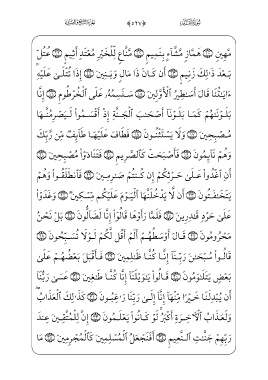 مَّهِينٍ ١٠ هَمَّازٍ مَّشَّآءٍۭ بِنَمِيمٍ ١١ مَّنَّاعٍ لِّلْخَيْرِ مُعْتَدٍ أَثِيمٍ ١٢ عُتُلٍّۭ
بَعْدَ ذَٰلِكَ زَنِيمٍ ١٣ أَن كَانَ ذَا مَالٍ وَبَنِينَ ١٤ إِذَا تُتْلَىٰ عَلَيْهِ
ءَايَٰتُنَا قَالَ أَسَٰطِيرُ ٱلْأَوَّلِينَ ١٥ سَنَسِمُهُۥ عَلَى ٱلْخُرْطُومِ ١٦ إِنَّا
بَلَوْنَٰهُمْ كَمَا بَلَوْنَآ أَصْحَٰبَ ٱلْجَنَّةِ إِذْ أَقْسَمُوا۟ لَيَصْرِمُنَّهَا
مُصْبِحِينَ ١٧ وَلَا يَسْتَثْنُونَ ١٨ فَطَافَ عَلَيْهَا طَآئِفٌ مِّن رَّبِّكَ
وَهُمْ نَآئِمُونَ ١٩ فَأَصْبَحَتْ كَٱلصَّرِيمِ ٢٠ فَتَنَادَوْا۟ مُصْبِحِينَ ٢١
أَنِ ٱغْدُوا۟ عَلَىٰ حَرْثِكُمْ إِن كُنتُمْ صَٰرِمِينَ ٢٢ فَٱنطَلَقُوا۟ وَهُمْ
يَتَخَٰفَتُونَ ٢٣ أَن لَّا يَدْخُلَنَّهَا ٱلْيَوْمَ عَلَيْكُم مِّسْكِينٌ ٢٤ وَغَدَوْا۟
عَلَىٰ حَرْدٍ قَٰدِرِينَ ٢٥ فَلَمَّا رَأَوْهَا قَالُوٓا۟ إِنَّا لَضَآلُّونَ ٢٦ بَلْ نَحْنُ
مَحْرُومُونَ ٢٧ قَالَ أَوْسَطُهُمْ أَلَمْ أَقُل لَّكُمْ لَوْلَا تُسَبِّحُونَ ٢٨
قَالُوا۟ سُبْحَٰنَ رَبِّنَآ إِنَّا كُنَّا ظَٰلِمِينَ ٢٩ فَأَقْبَلَ بَعْضُهُمْ عَلَىٰ
بَعْضٍ يَتَلَٰوَمُونَ ٣٠ قَالُوا۟ يَٰوَيْلَنَآ إِنَّا كُنَّا طَٰغِينَ ٣١ عَسَىٰ رَبُّنَآ
أَن يُبْدِلَنَا خَيْرًا مِّنْهَآ إِنَّآ إِلَىٰ رَبِّنَا رَٰغِبُونَ ٣٢ كَذَٰلِكَ ٱلْعَذَابُ
وَلَعَذَابُ ٱلْءَاخِرَةِ أَكْبَرُ لَوْ كَانُوا۟ يَعْلَمُونَ ٣٣ إِنَّ لِلْمُتَّقِينَ عِندَ
رَبِّهِمْ جَنَّٰتِ ٱلنَّعِيمِ ٣٤ أَفَنَجْعَلُ ٱلْمُسْلِمِينَ كَٱلْمُجْرِمِينَ ٣٥ مَا